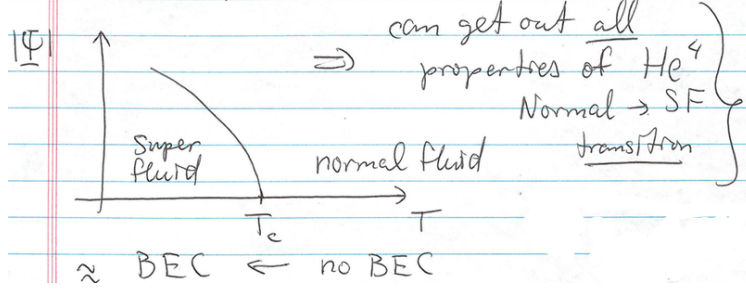 |Ψ|
⇒ can get out all
properties of He⁴
Normal → SF
transition
Super
fluid
normal fluid
T_c
T
≈ BEC ← no BEC